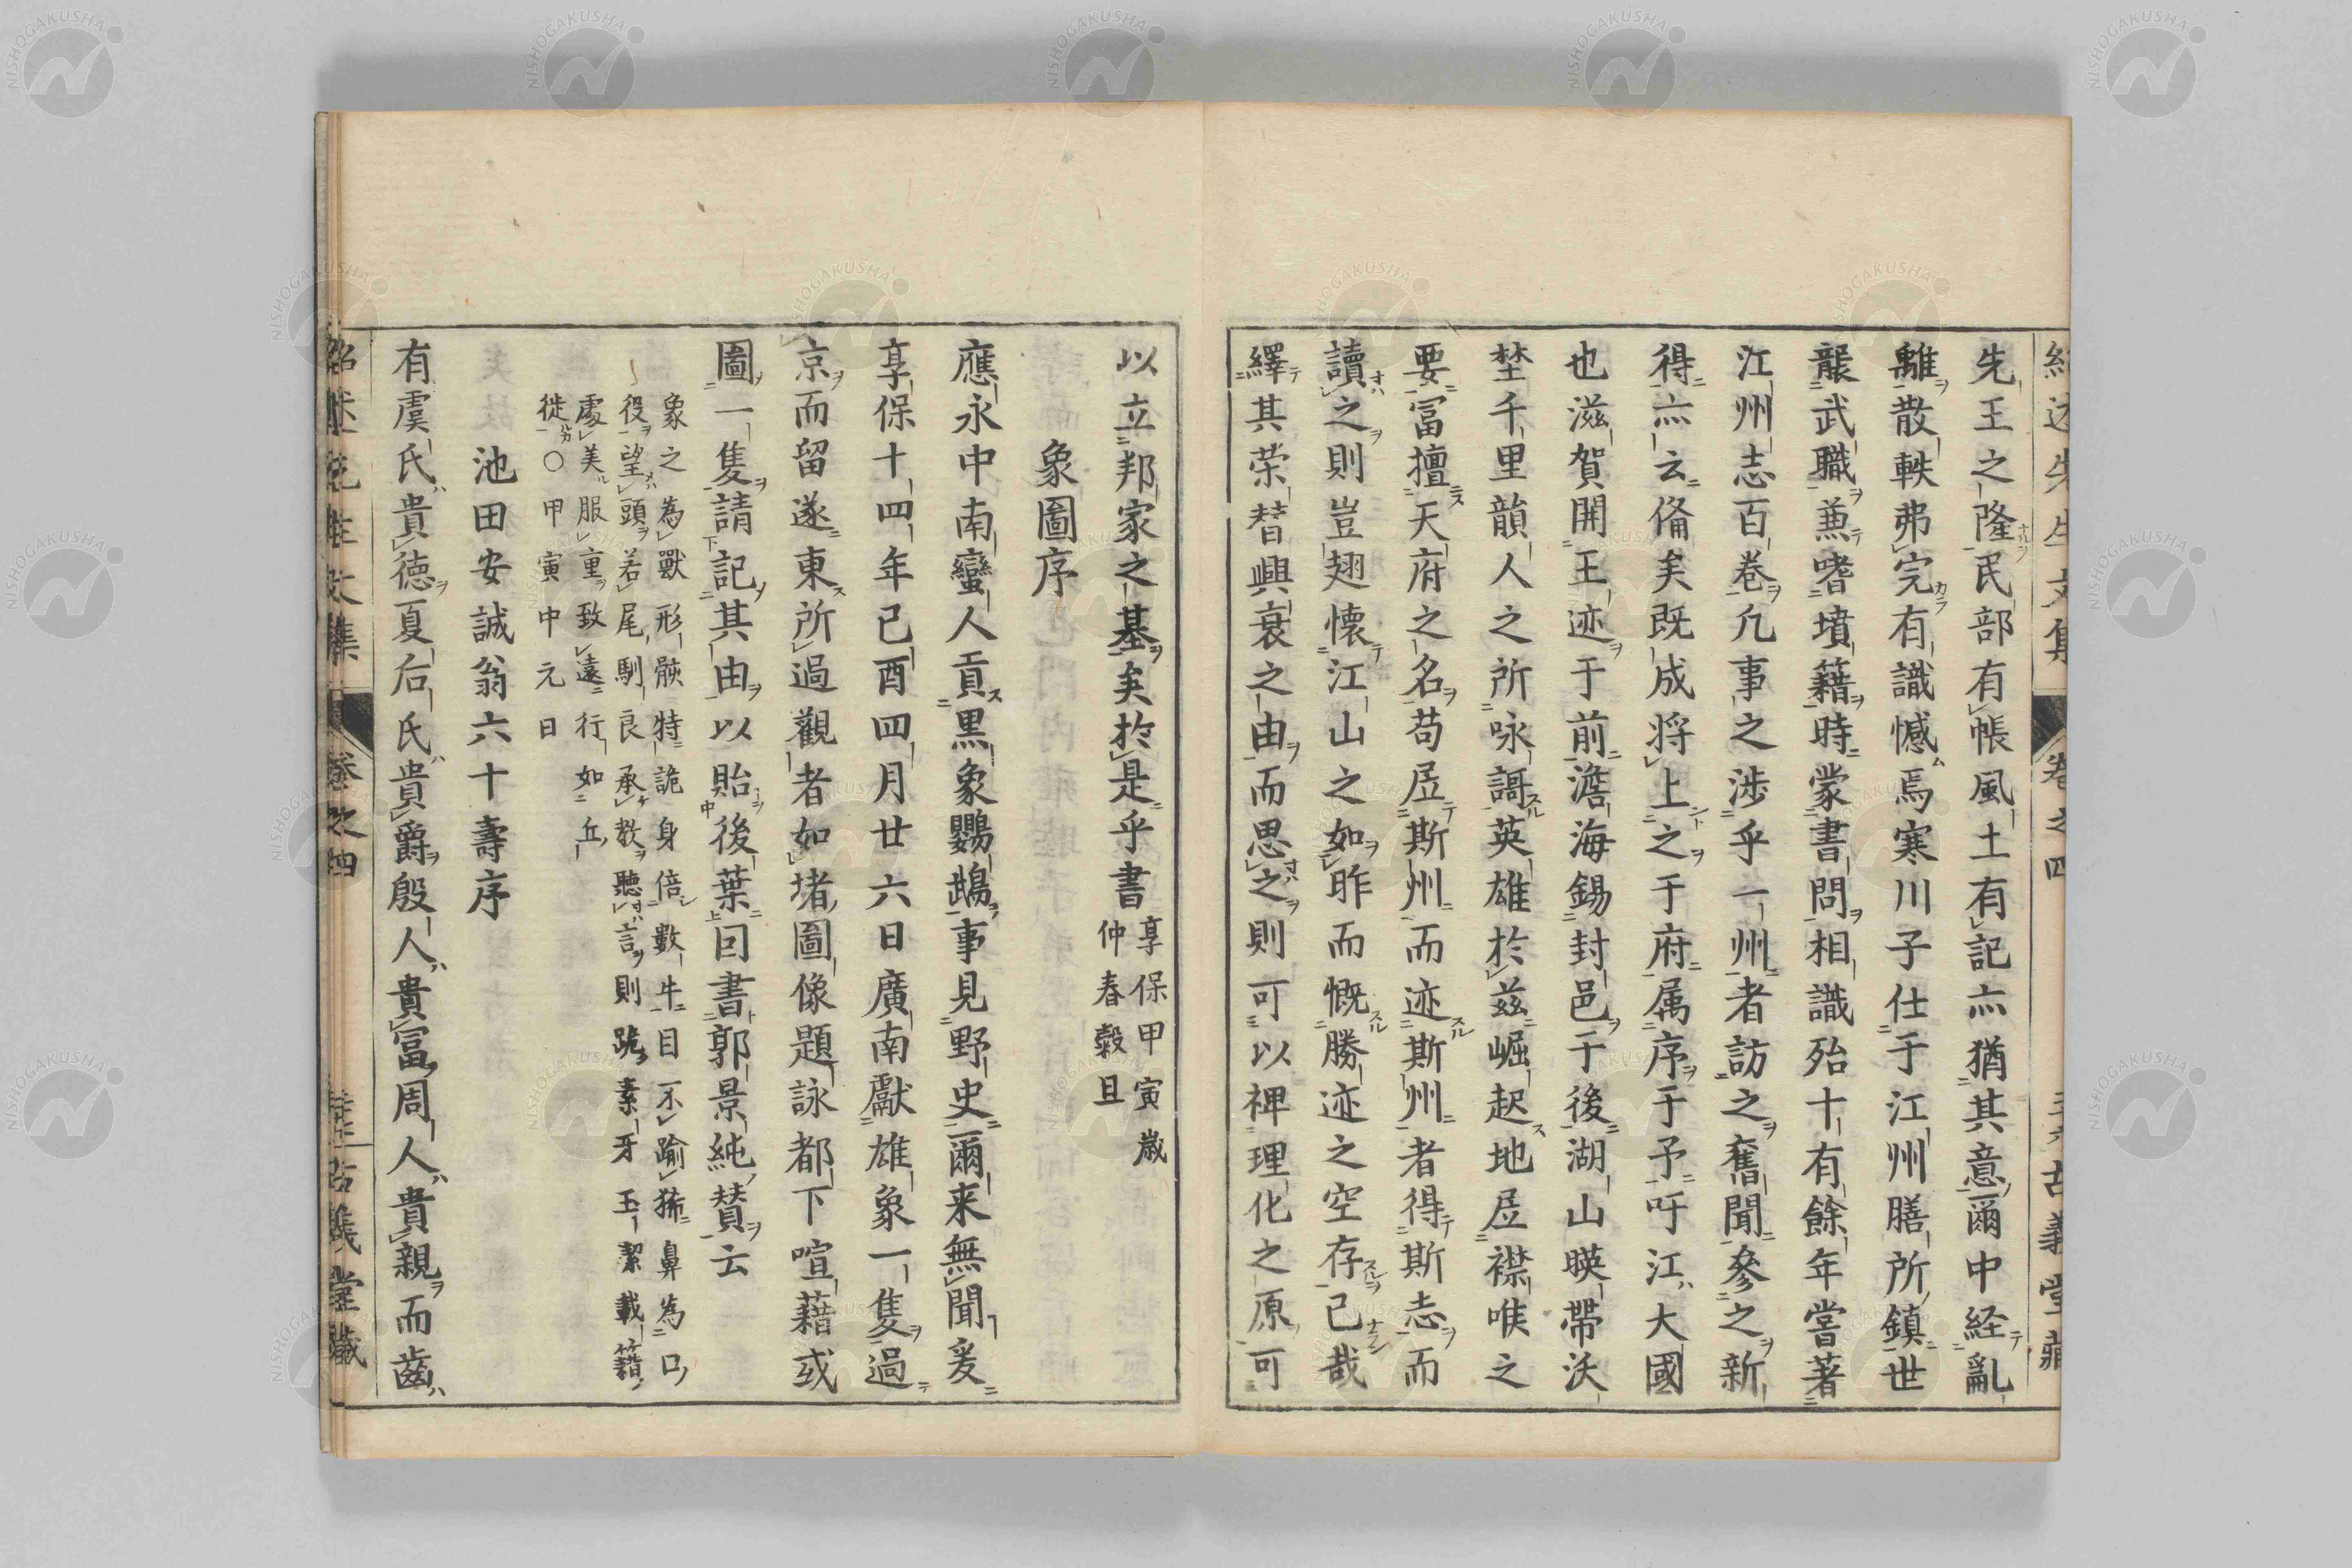 先王之隆民部有帳風土有記亦猶其意爾中経亂
離散軼弗完有識憾焉寒川子仕于江州膳所鎮世
襲武職兼嗜墳籍時蒙書問相識殆十有餘年嘗著
江州志百巻凢事之渉乎一州者訪之舊聞參之新
得亦云俻矣既成将上之于府属序于予吁江大國
也滋賀開王迹于前澹海錫封邑于後湖山暎帶沃
埜千里韻人之所咏謌英雄於茲崛起地居襟喉之
要冨擅天府之名苟居斯州而迹斯州者得斯志而
讀之則豈翅懐江山之如昨而慨勝迹之空存已哉
繹其荣替興衰之由而思之則可以裨理化之原可
以立邦家之基矣於是乎書
享保甲寅歳
仲春穀旦
象圖序
應永中南蠻人貢黒象鸚鵡事見野史爾来無聞爰
享保十四年己酉四月廿六日廣南獻雄象一隻過
京而留遂東所過觀者如堵圖像題詠都下喧藉或
圖一隻請記其由以貽後葉囙書郭景純賛云
象之為獸形骸特詭身倍數牛目不踰狶鼻為口
役望頭若尾馴良承教聽言則跪素牙玉潔載籍
處美服重致遠行如丘
徙〇甲寅中元日
池田安誠翁六十壽序
有虞氏貴徳夏后氏貴爵殷人貴冨周人貴親而齒
巻之四
古義堂藏
紹述先生文集
巻之四
古義堂藏
NISHOGAKUSHA